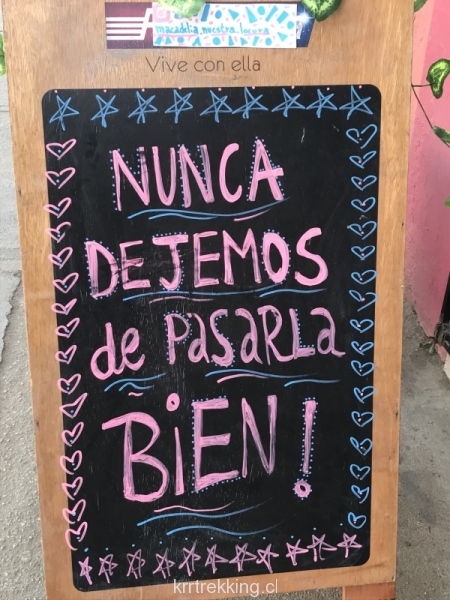 macadelia.nuestra.locura
Vive con ella
NUNCA
DEJEMOS
de PASARLA
BiEN!
krrtrekking.cl